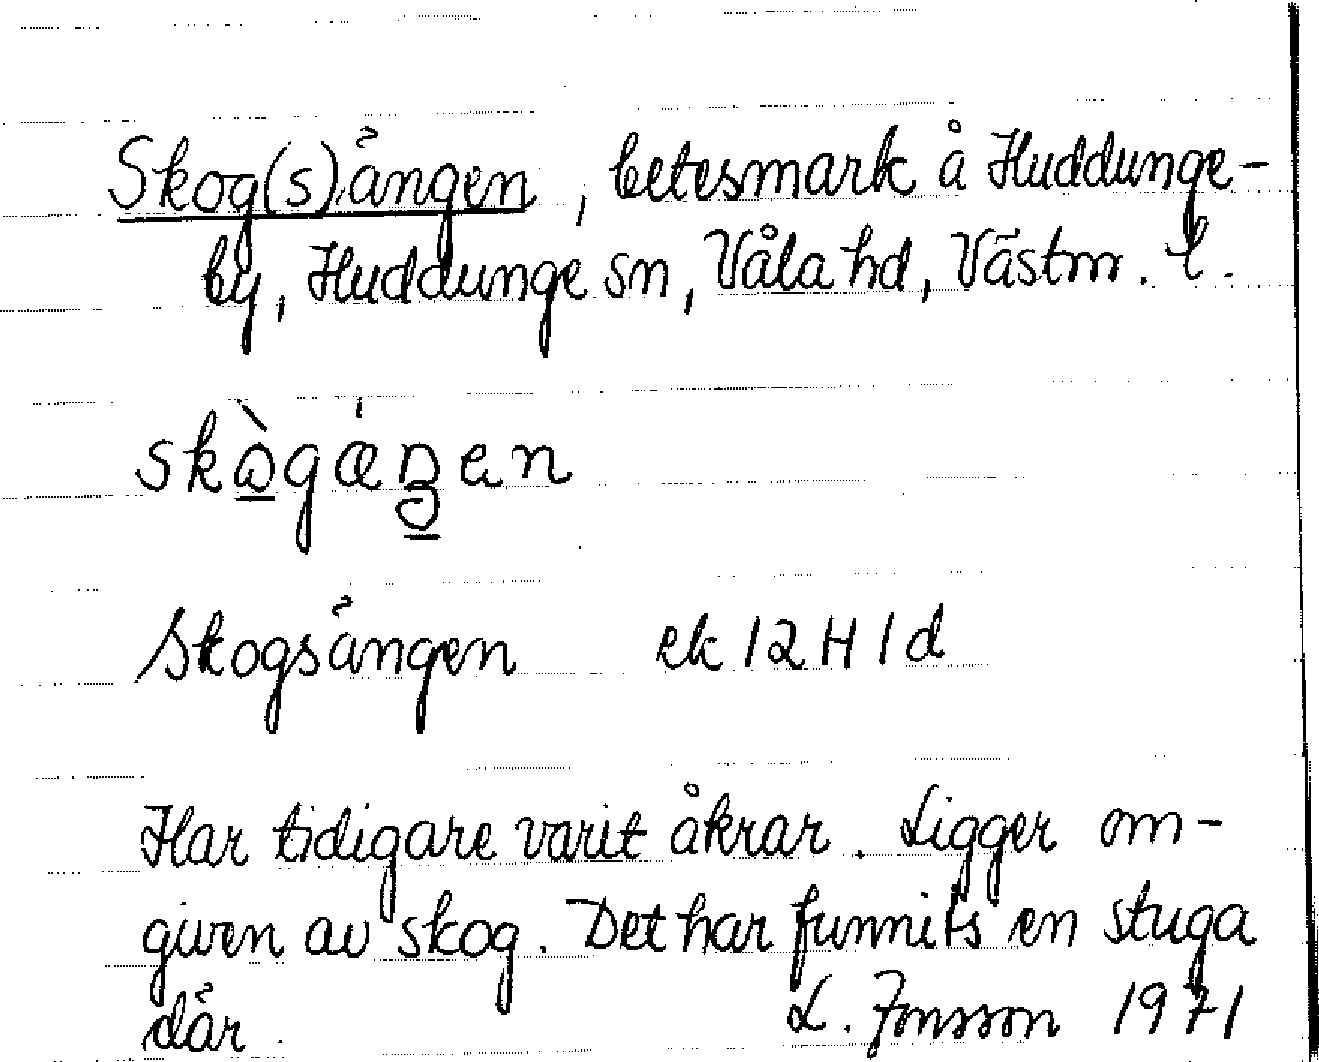 Skog(s)ängen, betesmark å Huddunge-
by, Huddunge sn, Våla hd, Västm. l.
skògäŋen
Skogsängen ek 12H1d
Har tidigare varit åkrar. Ligger om-
given av skog. Det har funnits en stuga
där. L. Jonsson 1971